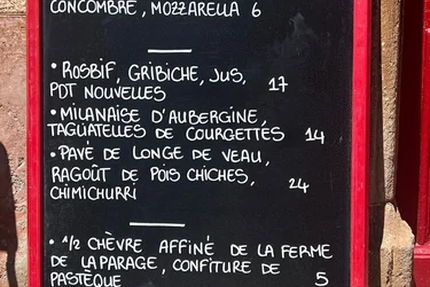 CONCOMBRE, MOZZARELLA 6
• ROSBIF, GRIBICHE, JUS,
PDT NOUVELLES 17
• MILANAISE D'AUBERGINE,
TAGLIATELLES DE COURGETTES 14
• PAVÉ DE LONGE DE VEAU,
RAGOÛT DE POIS CHICHES, 24
CHIMICHURRI
• 1/2 CHÈVRE AFFINÉ DE LA FERME
DE LAPARAGE, CONFITURE DE
PASTÈQUE 5